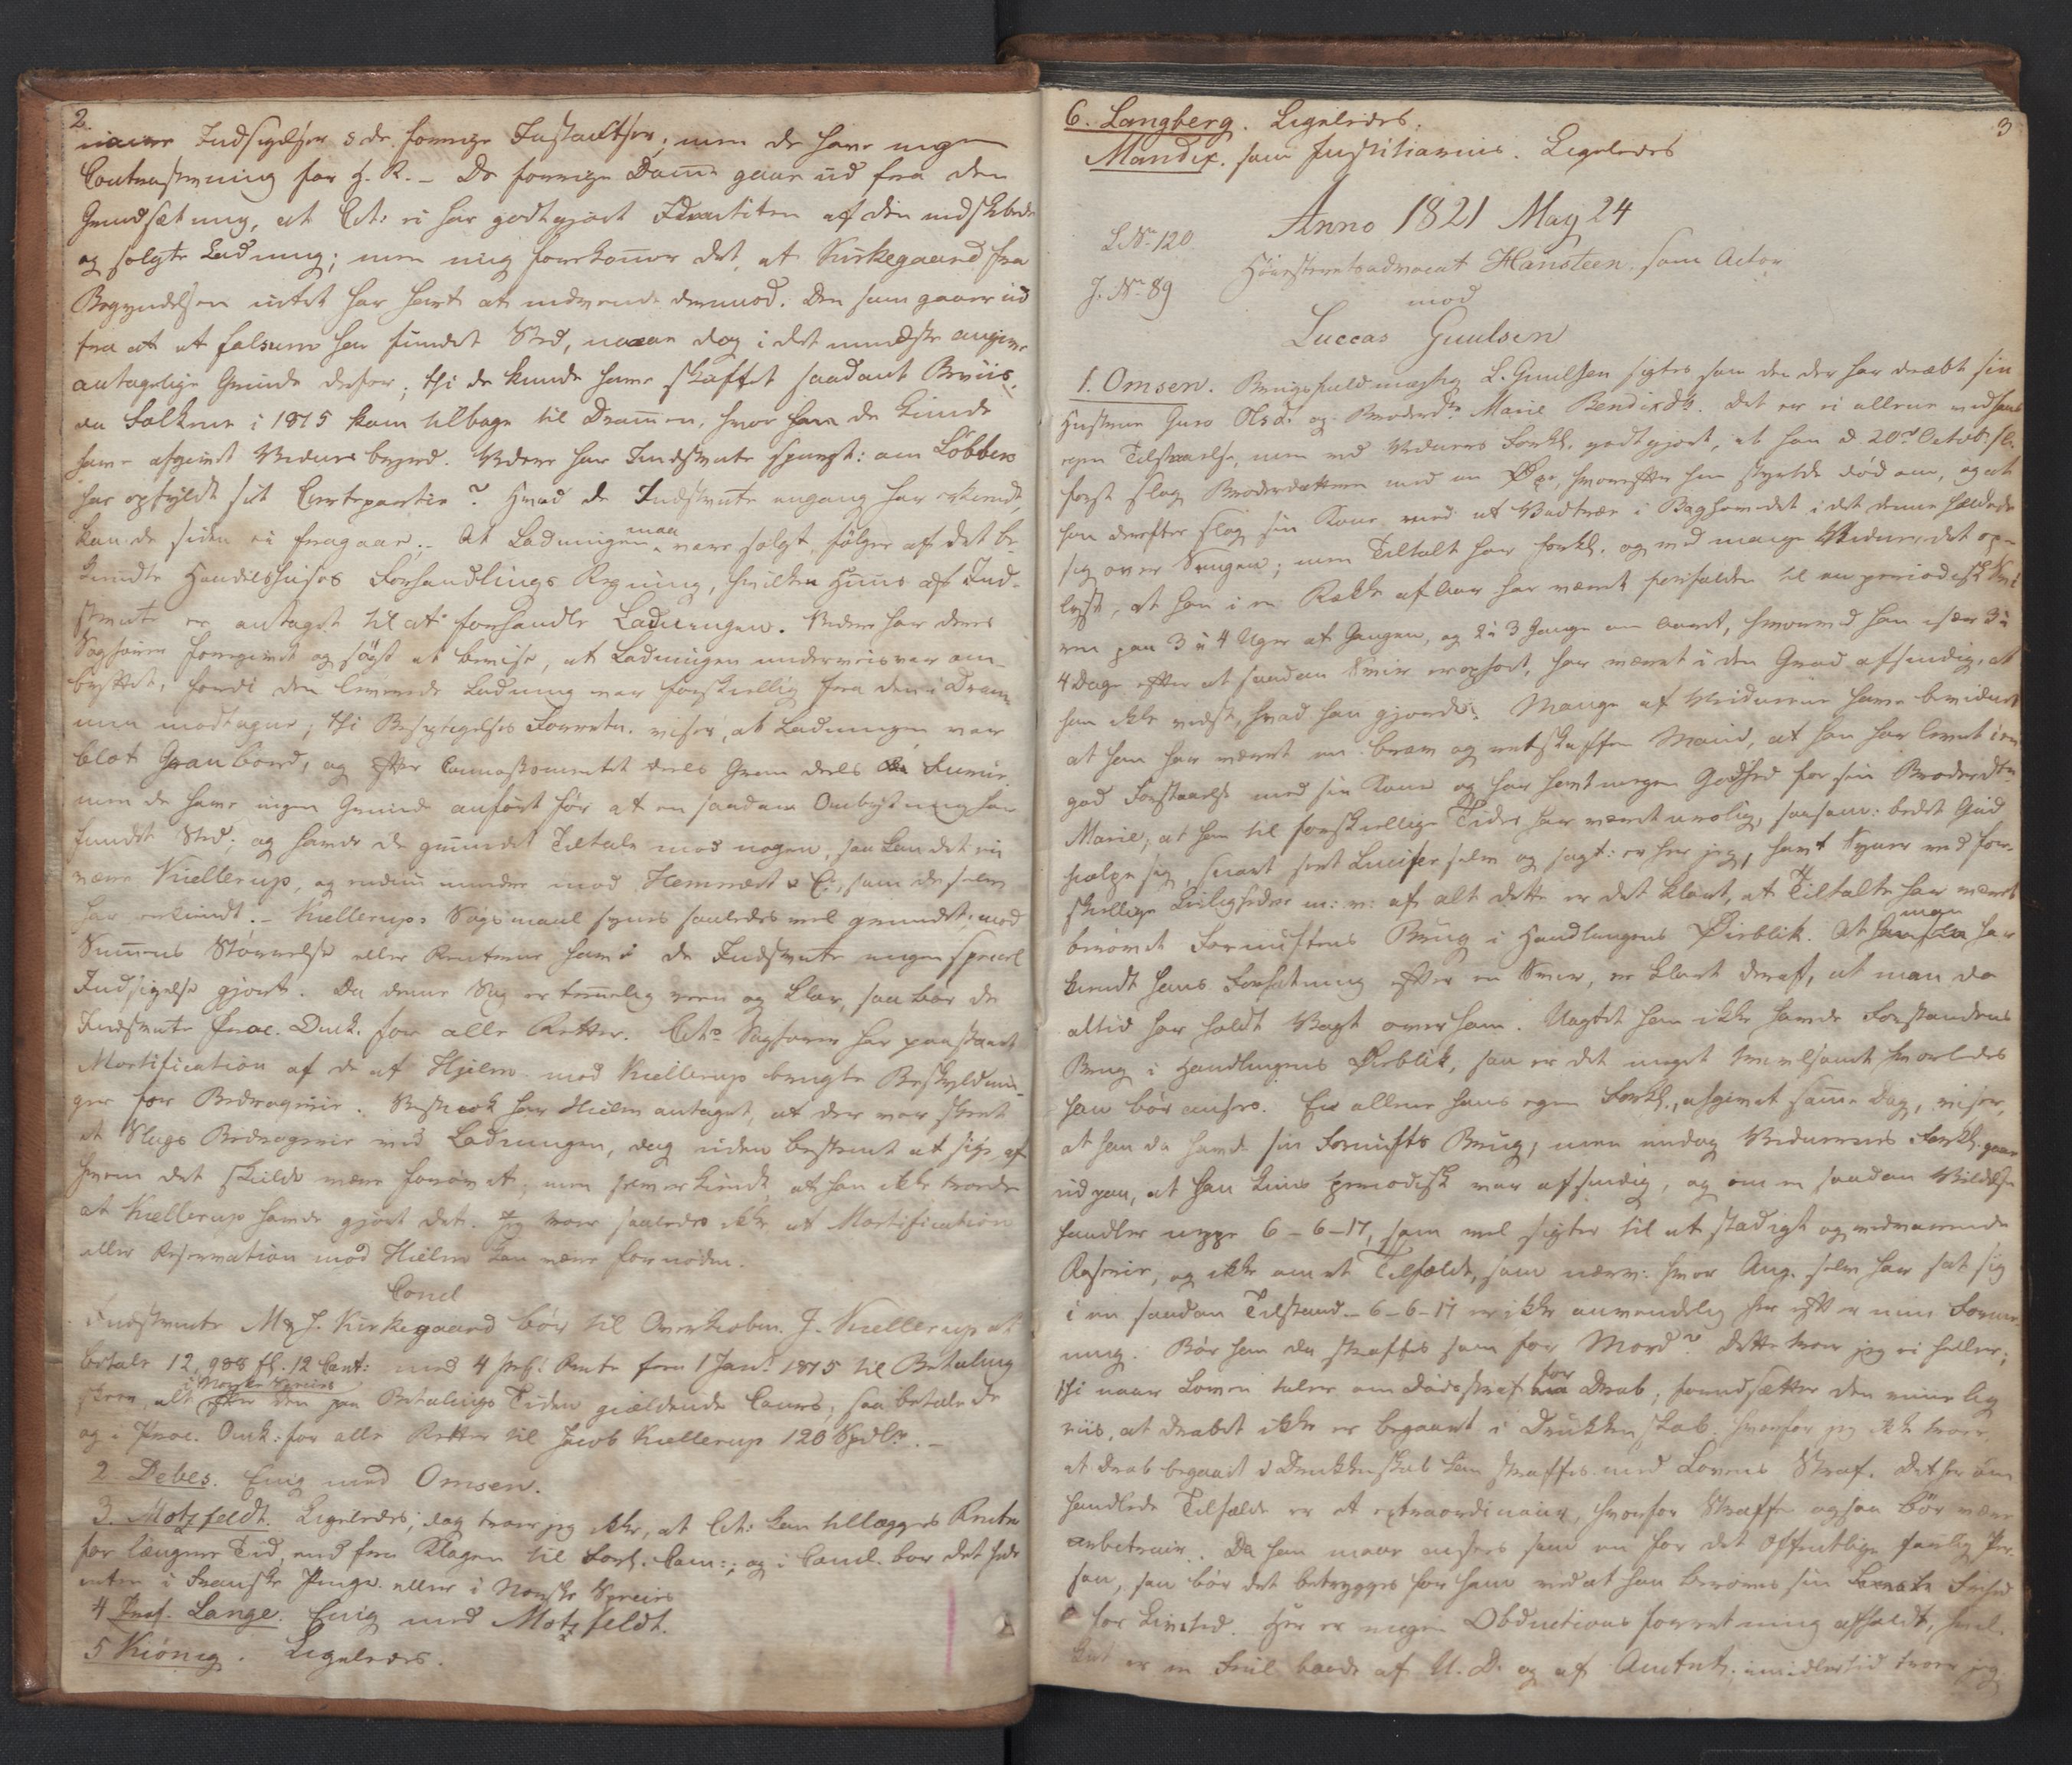 2.
Indsigelser i de forrige Instantser; men de have ingen
Contrastevning for H. R. – De forrige Domme gaae ud fra den
Grundsætning, at Cit: ei har godtgjort Identiteten af den indskibede
og solgte Ladning; men mig forekommer det, at Kirkegaard fra
Begyndelsen intet har havt at indvende derimod. Den som gaaer ud
fra at et falsum har fundet Sted, maae dog i det mindste angive
antagelige Grunde derfor; thi de kunde have skaffet saadant Beviis,
da Folkene i 1815 kom tilbage til Drammen, hvor de kunde
have afgivet Vidnesbyrd. Videre har Indstevnte spurgt: om Löbben
har opfyldt sit Certepartie? Hvad de Indstevnte engang har erkiendt,
kan de siden ei fragaae; – At Ladningen maa være solgt, følger af det be-
kiendte Handelshuses Forhandlings Regning, hvilken Huus af Ind-
stevnte er antaget til at forhandle Ladningen. Videre har deres
Sagfører foregivet og søgt at bevise, at Ladningen underveis var om-
byttet, fordi den leverede Ladning var forskiellig fra den i Dram-
men modtagne; thi Besigtigelses Forretn. viser, at Ladningen var
blot Granbord, og efter Connossementet deels Gran deels Furu
men de have ingen Grunde anført for at en saadan Ombytning har
fundet Sted; og havde de grundet Tiltale mod nogen, saa kan det ei
være Kiellerup, og endnu mindre mod Hemmert & C:, som de selv
har erkiendt. – Kiellerups Søgsmaal synes saaledes vel grundet; mod
Summens Størrelse eller Renterne have de Indstevnte ingen speciel
Indsigelse gjort. Da denne Sag er temmelig reen og klar, saa bør de
Indstevnte Proc. Omk. for alle Retter. Cit:s Sagfører har paastaaet
Mortification af de af Hjelm mod Kiellerup brugte Beskyldnin-
ger for Bedragerie. Vistnok har Hielm antaget, at der var skeet
et Slags Bedragerie med Ladningen, dog uden bestemt at sige af
hvem det skulde være forøvet; men selv erkiendt, at han ikke troede
at Kiellerup havde gjort det. Jeg troer saaledes ikke at Mortification
eller Reservation mod Hielm kan være fornøden.
Concl
Indstevnte M & J. Kirkegaard bör til Overkrbm. J. Kiellerup at
betale 12,988 fl. 12 Cent: med 4 prC: Rente fra 1 Jan: 1815 til Betaling
i Norske Species
skeer, alt efter den paa Betalings Tiden gieldende Cours, saa betale de
og i Proc. Omk: for alle Retter til Jacob Kiellerup 120 Spdlr. –
2 Debes. Enig med Omsen.
3. Motzfeldt. Ligeledes; dog troer jeg ikke, at Cit: kan tillægges Rente
for længere Tid, end fra Klagen til Forl. Com:; og i Concl. bør det hede
enten i Franske Penge eller i Norske Species
4 Prof. Lange. Enig med Motzfeldt.
5 Kiönig. Ligeledes.
3
6. Langberg. Ligeledes.
Mandix. som Justitiarius. Ligeledes
Anno 1821 May 24
L. No 120.
Höiesteretsadvocat Hansteen, som Actor
J. No 89
mod
Luccas Guulsen
1. Omsen. Brugsfuldmægtig L. Guulsen sigtes som den der har dræbt sin
Hustrue Guro Olsd. og Broderdtr. Marie Bendixdtr. Det er ei allene ved hans
egen Tilstaaelse, men ved Vidners Forkl. godtgjort, at han d. 20de Octob. sl.
først slog Broderdatteren med en Øxe, hvorefter hun styrtede død om, og at
han derefter slog sin Kone med et Vedtræe i Baghovedet i det denne heldede
sig over Vuggen; men Tiltalte har forkl. og ved mange Vidner er det op-
lyst, at han i en Række af Aar har været henfalden til en periodisk Svi-
ren paa 3 à 4 Uger ad Gangen, og 2 à 3 Gange om Aaret, hvorved han især 3 à
4 Dage efter at saadan Sviir er ophørt, har været i den Grad afsindig, at
han ikke vidste, hvad han gjorde. Mange af Vidnerne have bevidnet
at han har været en brav og retskaffen Mand, at han har levet i en
god Forstaaelse med sin Kone og har havt megen Godhed for sin Broderdtr.
Marie; at han til forskiellige Tider har været urolig, saasom: bedet Gud
hielpe sig, snart seet Lucifer selv og sagt: er her jeg, havt Syner ved for-
skiellige Leiligheder m: v: af alt dette er det klart, at Tiltalte har været
berøvet Fornuftens Brug i Handlingens Øieblik. At man har
kiendt hans Forfatning efter en Sviir, er klart deraf, at man da
altid har holdt Vagt over ham. Uagtet han ikke havde Forstandens
Brug i Handlingens Øieblik, saa er det meget tvivlsomt hvorledes
han bør ansees. Ei allene hans egen Forkl., afgivet samme Dag, viser,
at han da havde sin Fornufts Brug; men endog Vidnernes Forkl. gaae
ud paa, at han kun periodisk var afsindig, og om en saadan Vildelse
handler neppe 6-6-17, som vel sigter til et stadigt og vedvarende
Raserie, og ikke om et Tilfælde, som nærv: hvor Ang. selv har sat sig
i en saadan Tilstand – 6-6-17 er ikke anvendelig her efter min Form-
ning. Bør han da straffes som for Mord? Dette troer jeg ei heller;
thi naar Loven taler om Dødsstraf for Drab, forudsætter den rimelig
viis, at Drabet ikke er begaaet i Drukkenskab; hvorfor jeg ikke troer,
at Drab begaaet i Drukkenskab kan straffes med Lovens Straf. Det her om
handlede Tilfælde er et extraordinair, hvorfor Straffen ogsaa bør være
arbitrair. Da han maae ansees som en for det Offentlige farlig Per-
son, saa bør det betrygges for ham ved at han berøves sin Frihed
for Livstid. Her er ingen Obductions forretning afholdt, hvil-
ket er en Feil baade af U. D. og af Amtet; imidlertid troer jeg